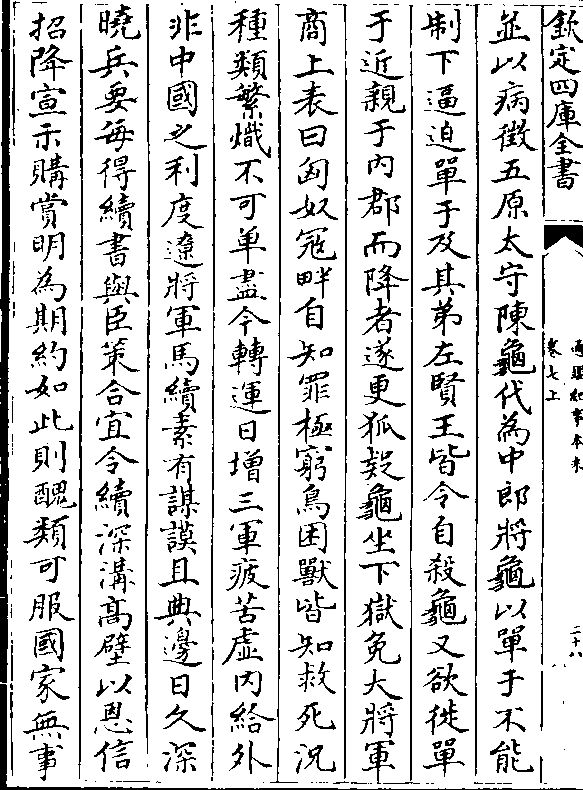 欽定四庫全書
通鑑紀事本末
卷七上
二十八
並以病徵五原太守陳龜代為中郎將龜以單于不能
制下逼迫單于及其弟左賢王皆令自殺龜又欲徙單
于近親于内郡而降者遂更狐疑龜坐下獄免大將軍
商上表曰匈奴冦畔自知罪極窮鳥困獸皆知救死況
種類繁熾不可单盡今轉運日增三軍疲苦虛内給外
非中國之利度遼將軍馬續素有謀謨且典邊日久深
曉兵要每得續書與臣策合宜令續深溝高壁以恩信
招降宣示購賞明為期約如此則醜類可服國家無事